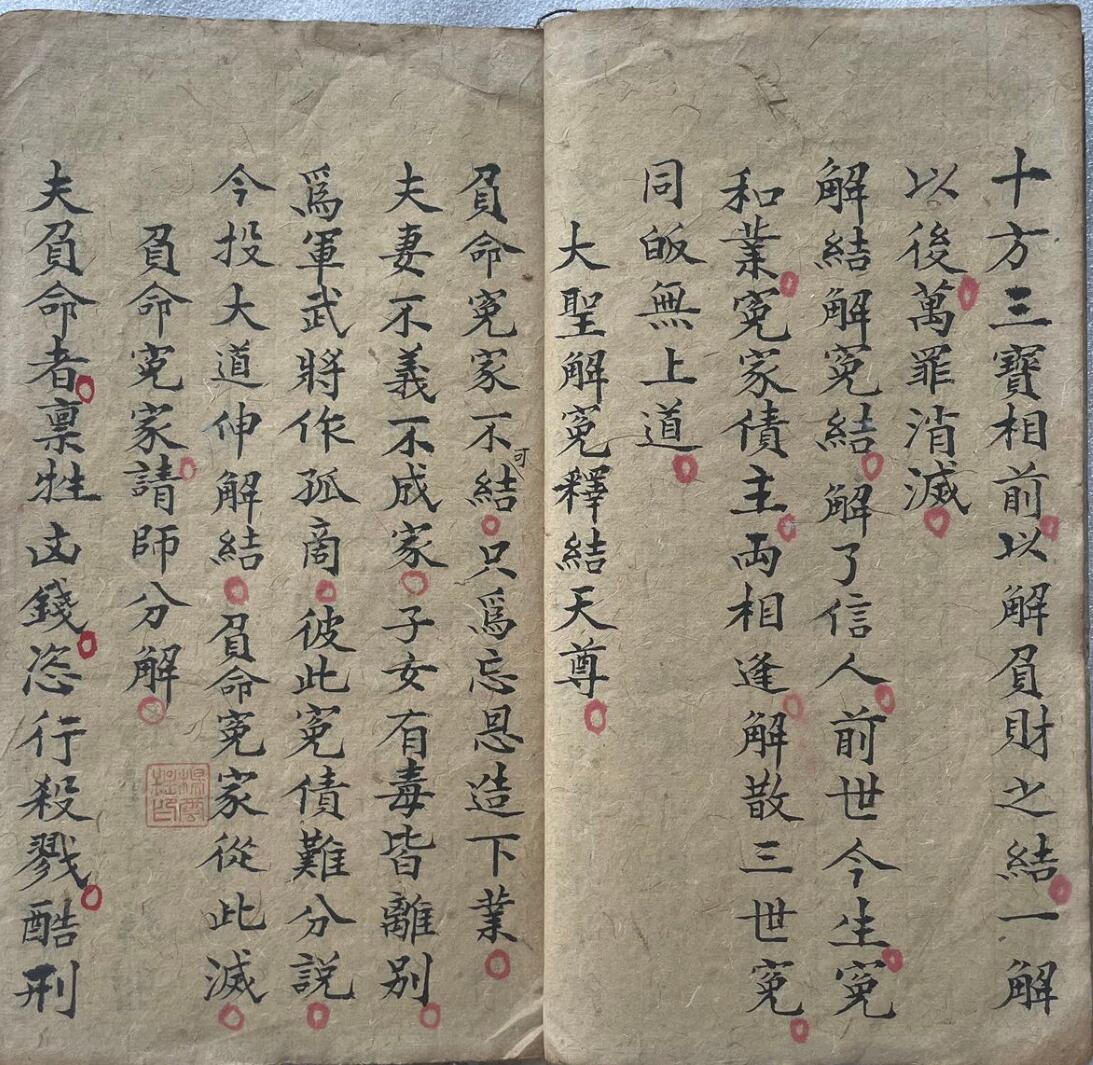 十方三寳相前以解負財之結一解
以後萬罪消滅
解結解寃結解了信人前世今生寃
和業寃家債主両相逢解散三世寃
同皈無上道
大聖解寃釋結天尊
負命寃家不可結只爲忘恩造下業
夫妻不義不成家子女有毒皆離别
爲軍武將作孤商彼此寃債難分説
今投大道伸解結負命寃家從此滅
負命寃家請師分解
夫負命者禀牲凶錢恣行殺戮酷刑